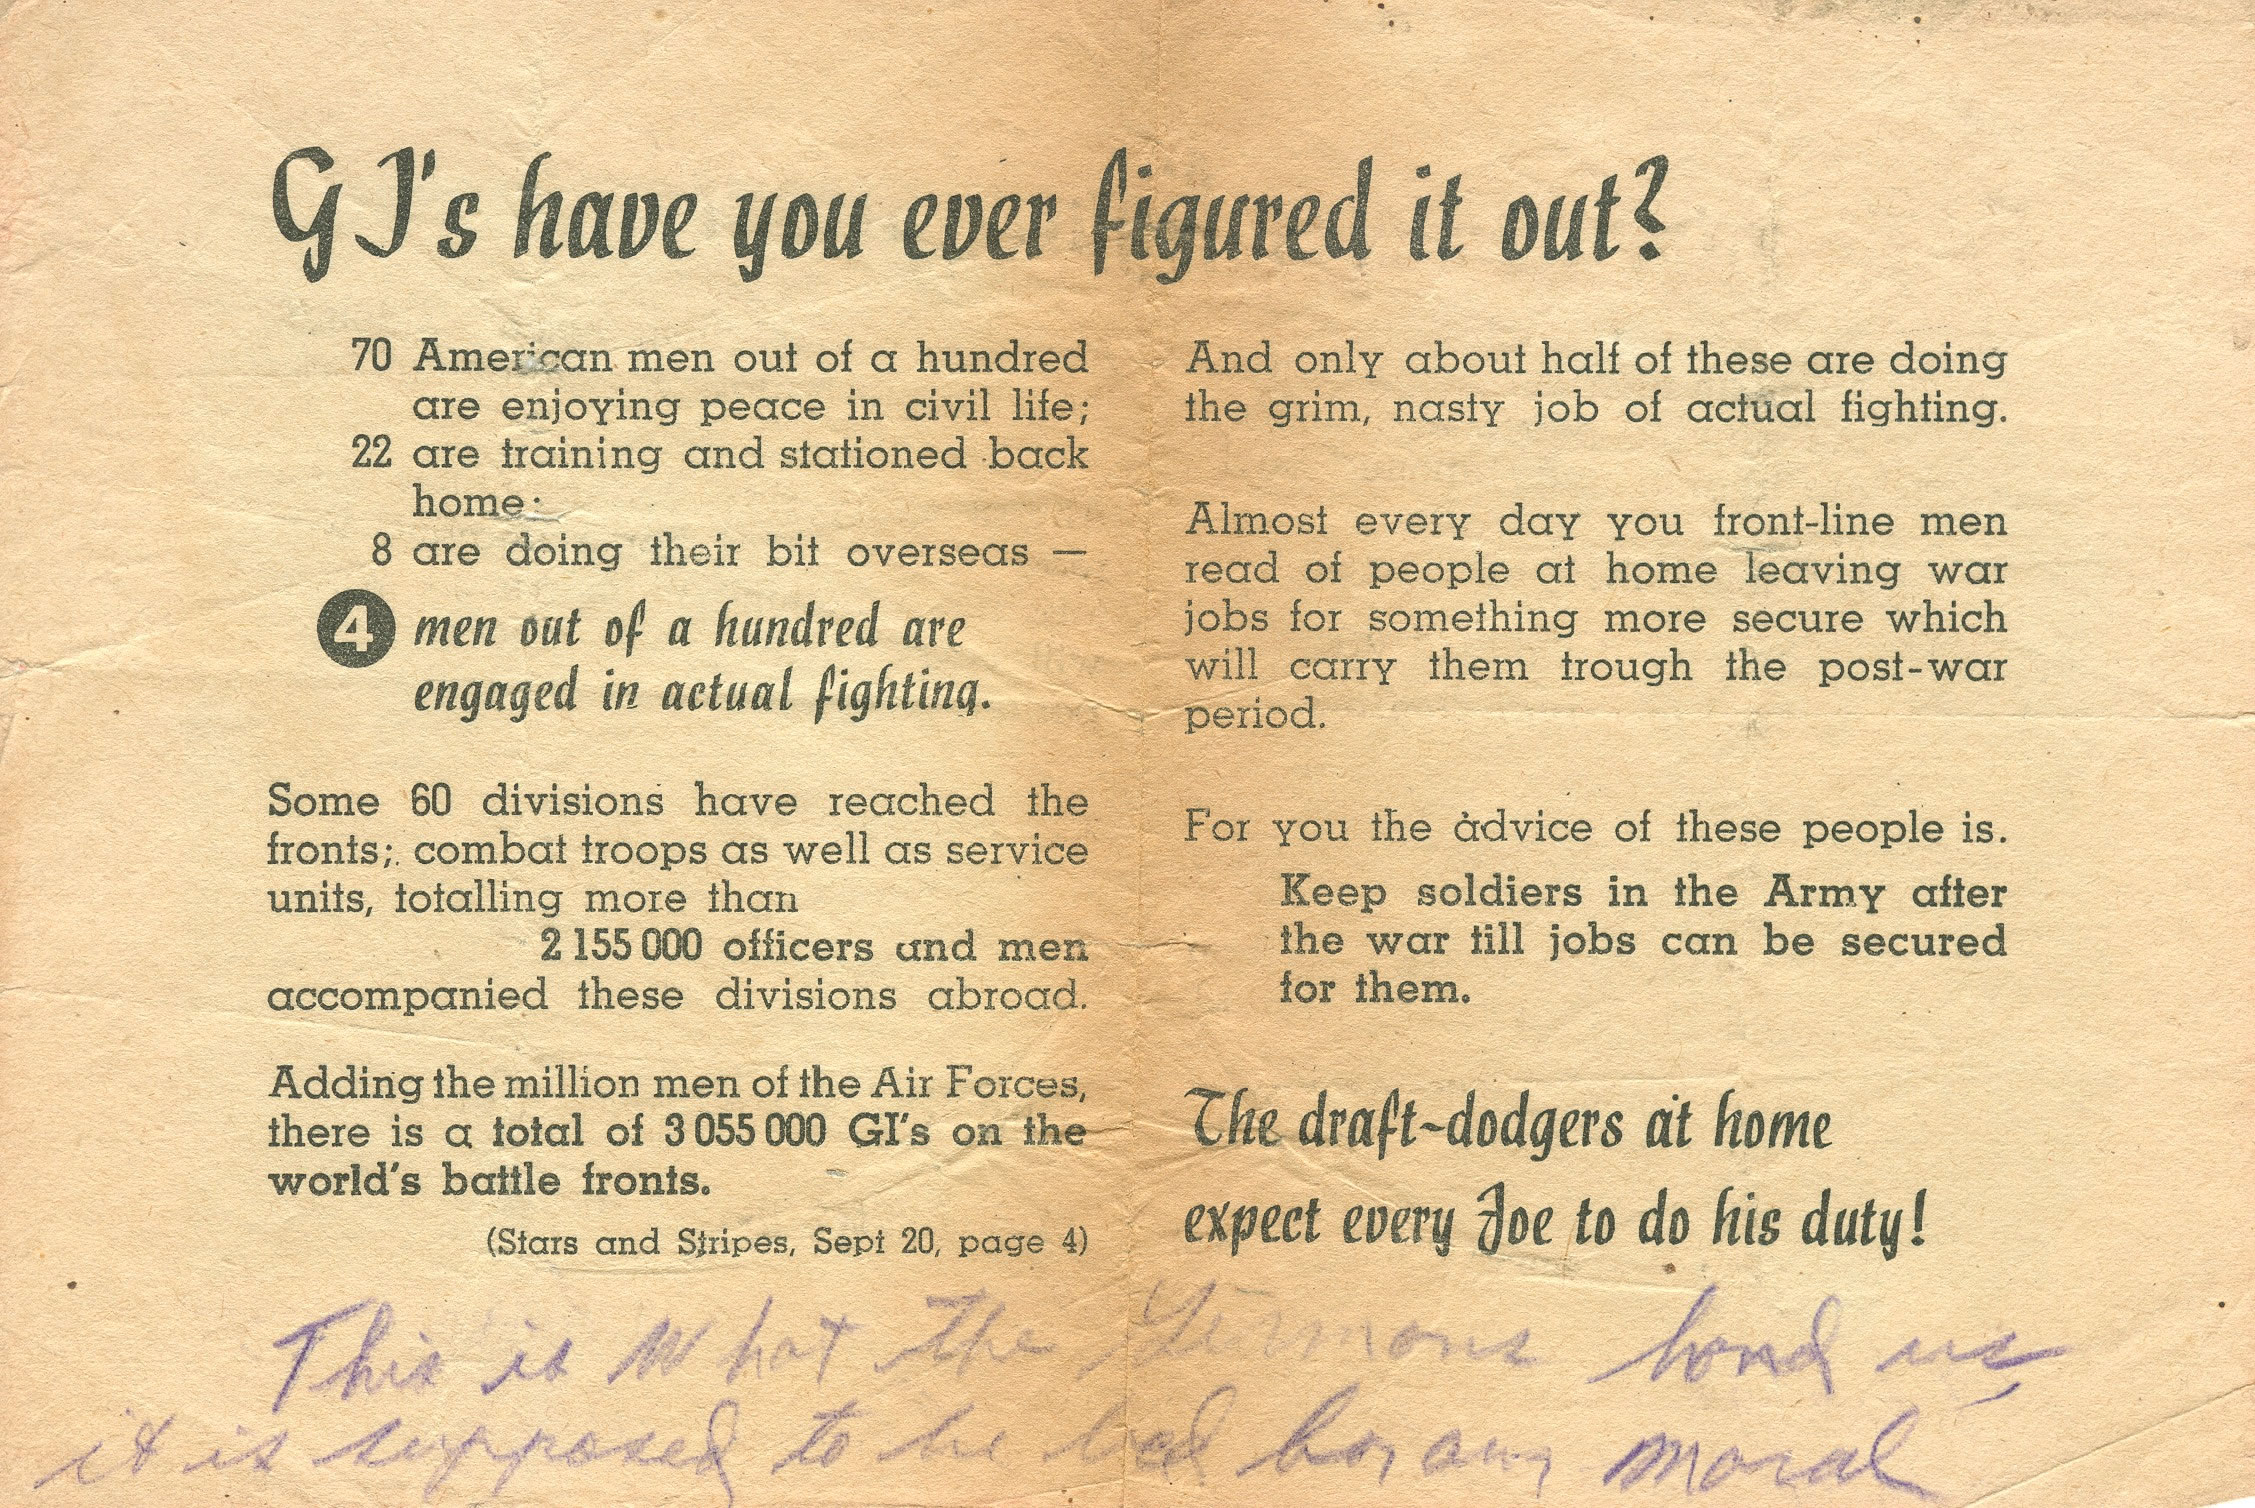 GI's have you ever figured it out?
70 American men out of a hundred
are enjoying peace in civil life;
22 are training and stationed back
home;
8 are doing their bit overseas —
4 men out of a hundred are
engaged in actual fighting.
Some 60 divisions have reached the
fronts; combat troops as well as service
units, totalling more than
2 155 000 officers and men
accompanied these divisions abroad.
Adding the million men of the Air Forces,
there is a total of 3 055 000 GI's on the
world's battle fronts.
(Stars and Stripes, Sept 20, page 4)
And only about half of these are doing
the grim, nasty job of actual fighting.
Almost every day you front-line men
read of people at home leaving war
jobs for something more secure which
will carry them trough the post-war
period.
For you the advice of these people is.
Keep soldiers in the Army after
the war till jobs can be secured
for them.
The draft-dodgers at home
expect every Joe to do his duty!
This is What the Germans hand us,
it is supposed to be bad for our moral